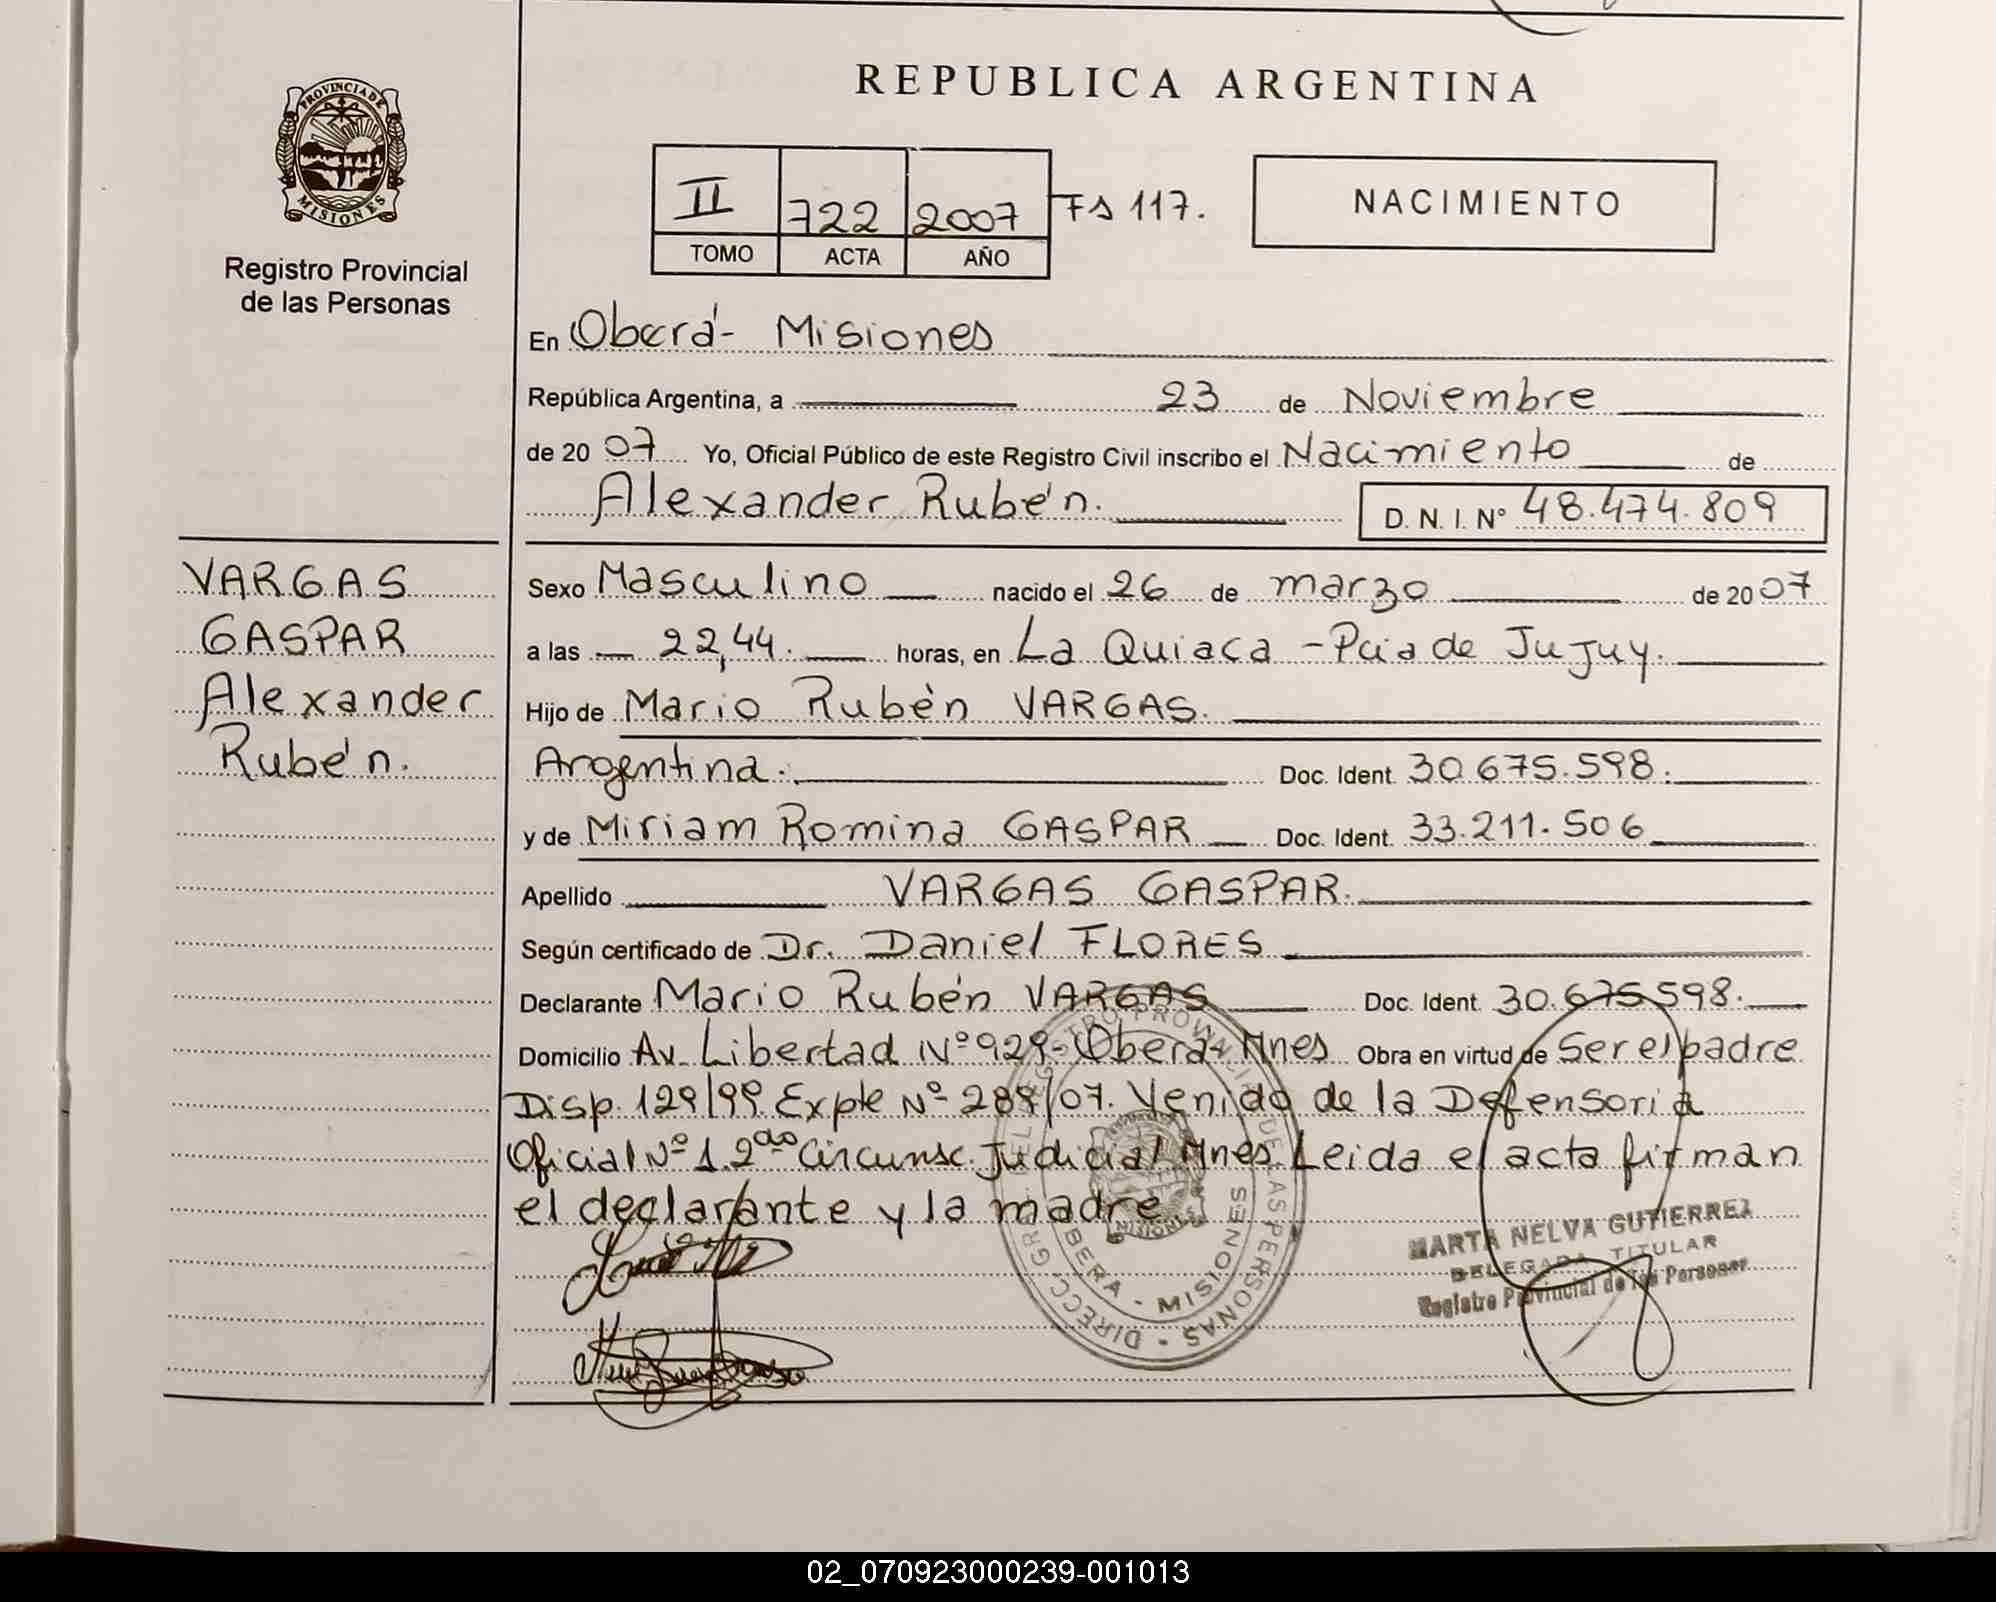 REPUBLICA ARGENTINA
PROVINCIA DE MISIONES
Registro Provincial
de las Personas
II 722 2007 Fs 117.
TOMO ACTA AÑO
NACIMIENTO
En Oberá - Misiones
República Argentina, a 23 de Noviembre
de 2007 Yo, Oficial Público de este Registro Civil inscribo el Nacimiento de
Alexander Rubén. D. N. I. Nº 48.474.809
VARGAS
GASPAR
Alexander
Rubén.
Sexo Masculino nacido el 26 de marzo de 2007
a las 22,44. horas, en La Quiaca - Pcia de Jujuy.
Hijo de Mario Rubèn VARGAS.
Argentina. Doc. Ident. 30.675.598.
y de Miriam Romina GASPAR Doc. Ident. 33.211.506
Apellido VARGAS GASPAR.
Según certificado de Dr. Daniel FLORES
Declarante Mario Rubén VARGAS Doc. Ident. 30.675.598.
Domicilio Av. Libertad Nº 929 - Oberá - Mnes Obra en virtud de Ser el padre
Disp. 129/99. Expte Nº 289/07. Venido de la Defensoria
Oficial Nº 1. 2da Circunsc. Judicial Mnes. Leida el acta firman
el declarante y la madre.
MARTA NELVA GUTIERREZ
DELEGADA TITULAR
Registro Provincial de las Personas
OBERA - MISIONES
02_070923000239-001013